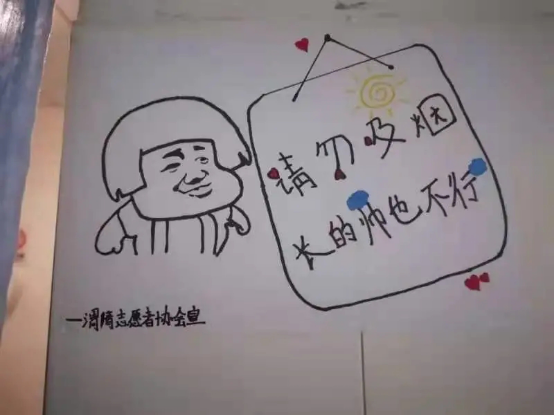 请勿吸烟
长的帅也不行
—渭隋志愿者协会宣